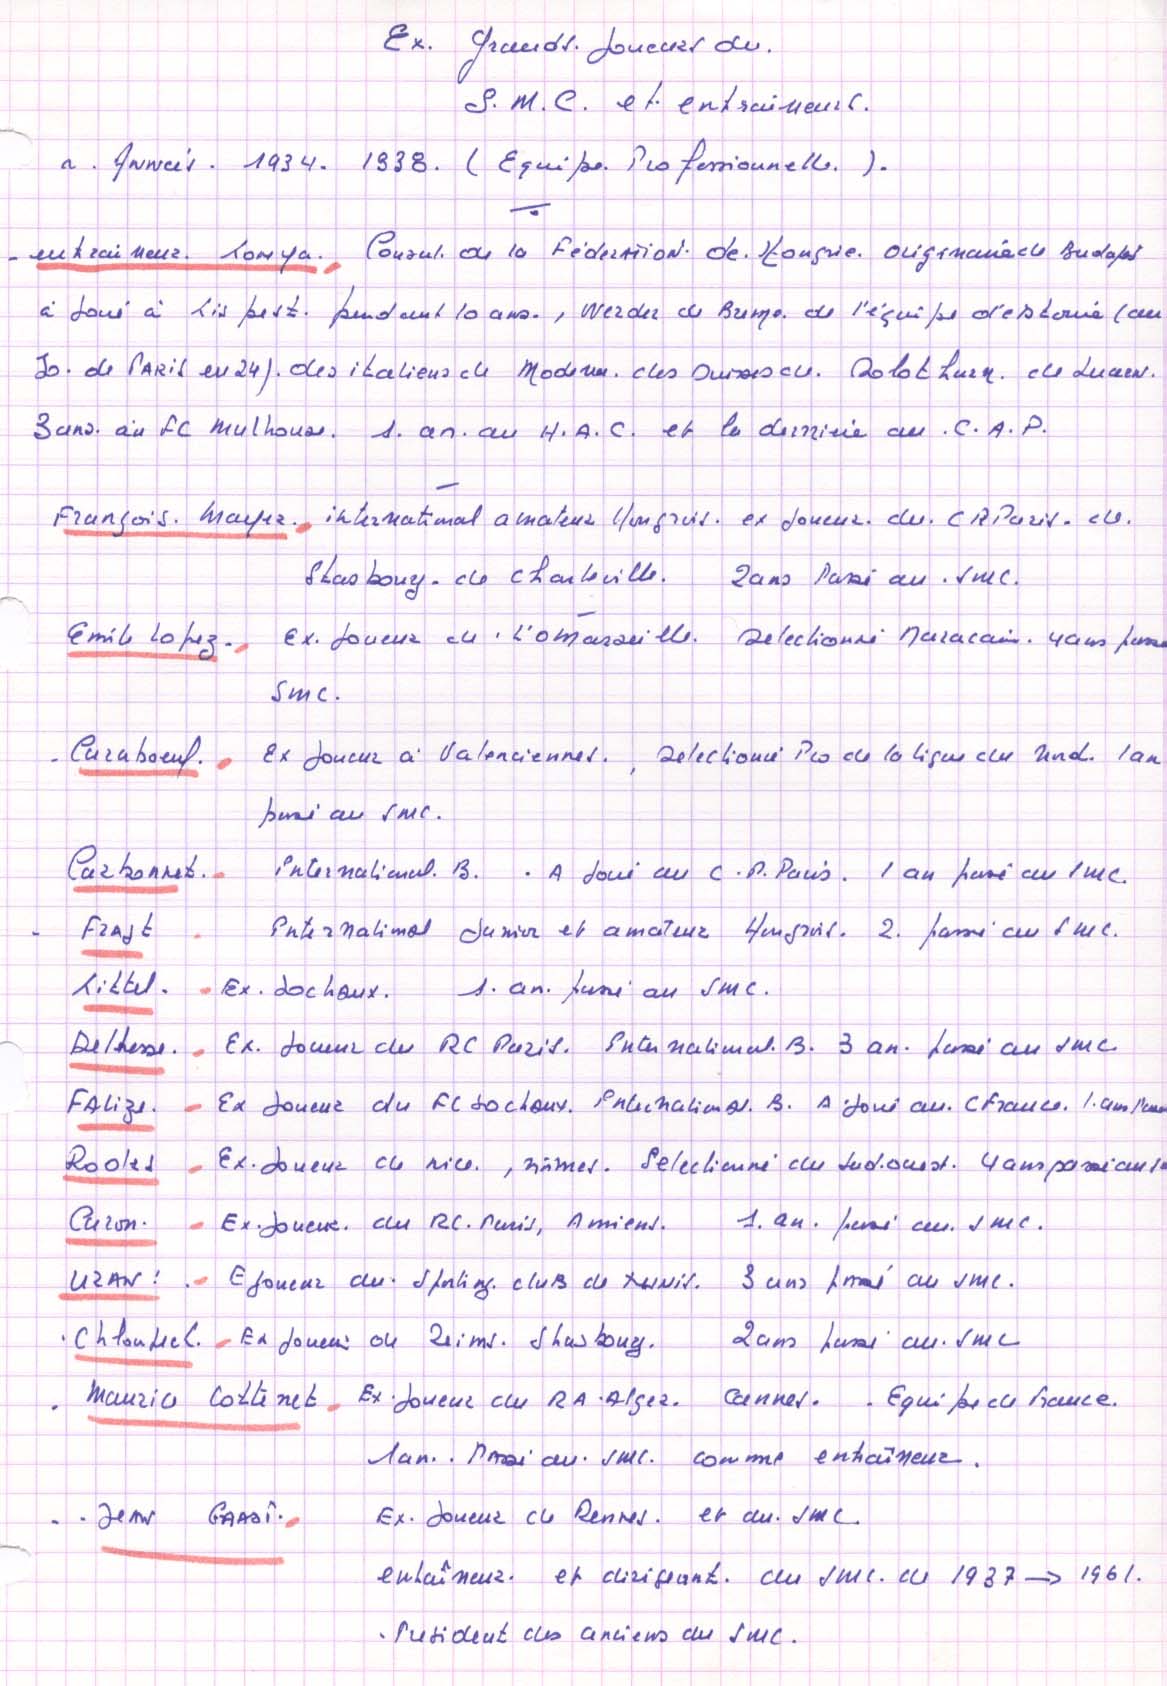 Ex. Grands. Joueurs du.
S. M. C. et entraineurs.
a. Années. 1934. 1938. (Equipe. Professionnelle.).
- entraineur. Konya. Consul. de la Fédération. de. Hongrie. originaire de Budapes
à Joué à pendant 10 ans., Werder de Breme. de l'équipe d'estonie (au
Jo. de PARIS en 24). des italiens de Modena. des suisses de. Solothurn. de Luzern.
3 ans. au FC Mulhouse. 1. an. au H. A. C. et la dernière au .C. A. P.
François. Mayer. international amateur Hongrois. ex Joueur. du. C A Paris. de.
Strasbourg. de Charleville. 2 ans Passé au .SMC.
Emile Lopez. Ex. Joueur de . L'O Marseille. selectionné Marocain. 4 ans passé
SMC.
. Caraboeuf. Ex Joueur à Valenciennes., selectioné Pro de la ligue du Nord. 1 an
passé au SMC.
Carbonnet. International. B. . A Joué au C. A. Paris. 1 an passé au SMC.
- FRAJT . International Junior et amateur Hongrois. 2. passé au SMC.
Kittel. - Ex. Sochaux. 1. an. passé au SMC.
Delhesse. - Ex. Joueur du RC Paris. International. B. 3 an. passé au SMC
FAlize. - Ex Joueur du FC Sochaux. International. B. A Joué au. C France. 1. an
Roolet - Ex. Joueur de nice., nîmes. Sélectionné du Sud. ouest. 4 ans passé au
Caron. - Ex. Joueur. du RC. Paris, Amiens. 1. an. passé au. SMC.
UZAN: . - E Joueur du. Sporting. cluB de tunis. 3 ans passé au SMC.
. Chloupek. - Ex Joueur de Reims. Strasbourg. 2 ans passé au. SMC
. Maurice Cottenet. Ex. Joueur du RA. Alger. Cannes. . Equipe de France.
1 an. . Passé au. SMC. comme entraîneur.
. . Jean Ex. Joueur de Rennes. et du. SMC
entraîneur. et dirigeant. du SMC. de 1937 → 1961.
. President des anciens du SMC.